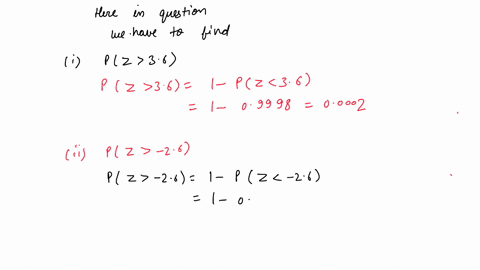 Here in question
we have to find
(i) P(Z>3.6)
P(Z>3.6) = 1- P(Z<3.6)
= 1- 0.9998 = 0.0002
(ii) P(Z>-2.6)
P(Z>-2.6) = 1- P(Z<-2.6)
= 1- 0.